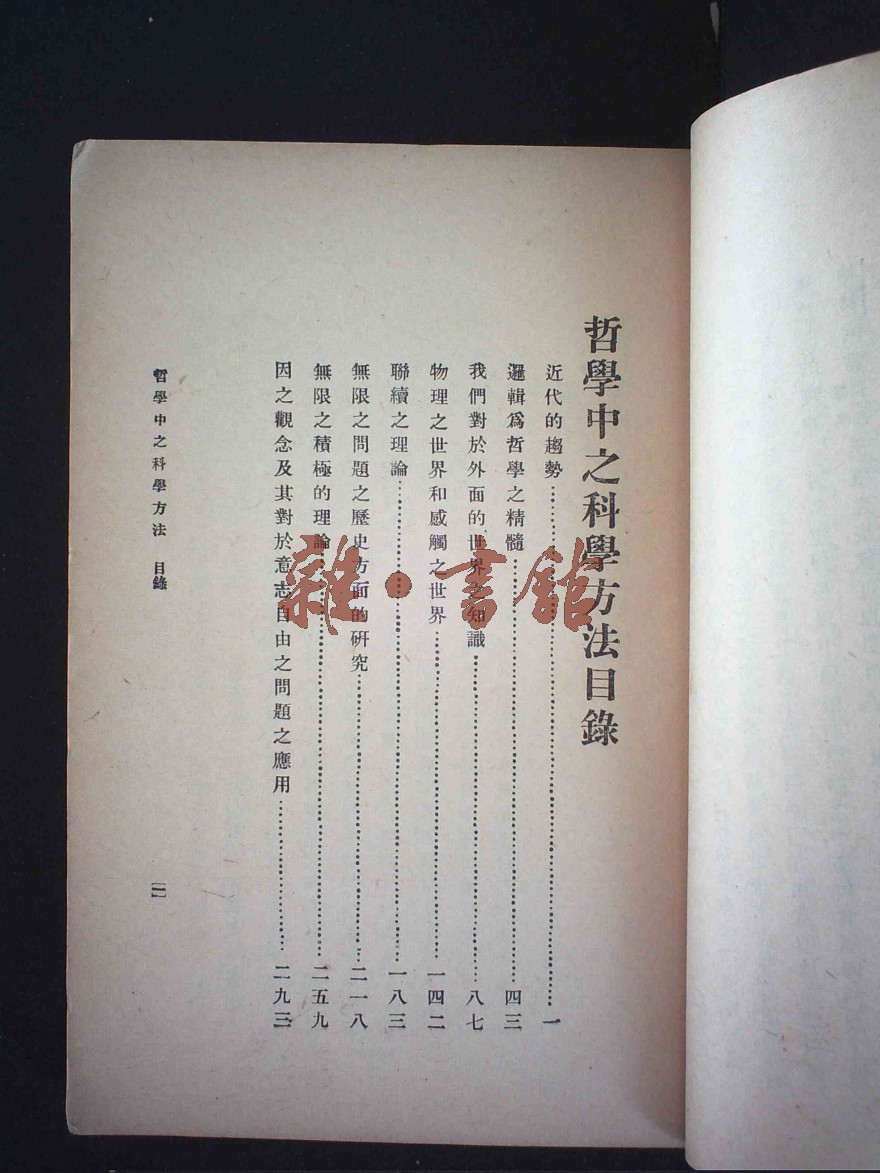 哲學中之科學方法目錄
近代的趨勢……一
邏輯爲哲學之精髓……四三
我們對於外面的世界之知識……八七
物理之世界和感觸之世界……一四二
聯續之理論……一八三
無限之問題之歷史方面的研究……二一八
無限之積極的理論……二五九
因之觀念及其對於意志自由之問題之應用……二九三
哲學中之科學方法 目錄
一
雜·書館